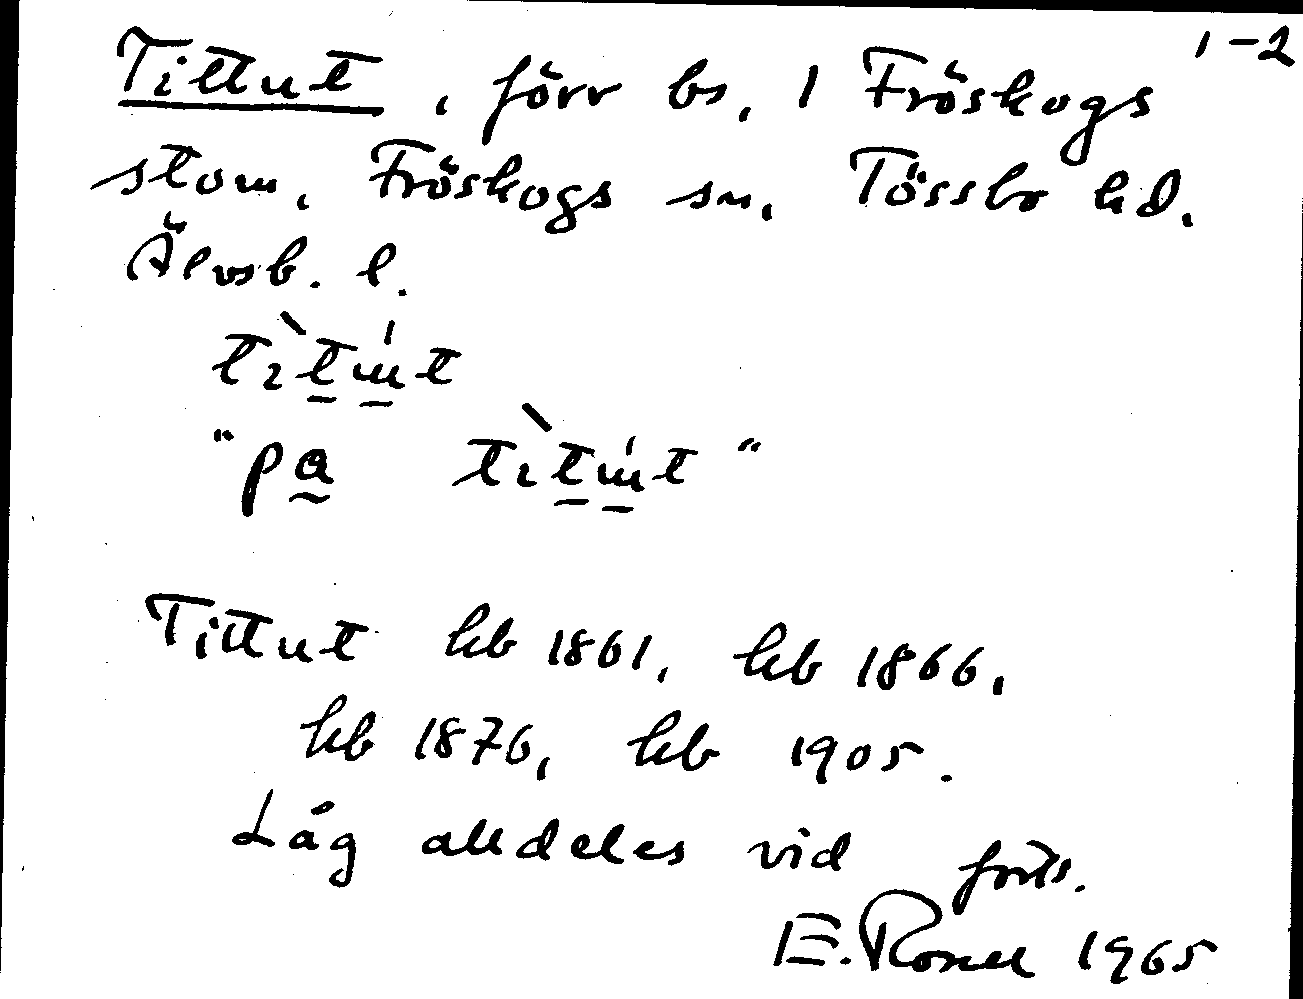 1-2
Tittut, förr bs. / Fröskogs
stom, Fröskogs sn, Tössbo hd.
Älvsb. l.
tɩ̀tu̍t
"pa tɩ̀tu̍t"
Tittut hb 1861, hb 1866,
hb 1876, hb 1905.
Låg alldeles vid forts.
E. Rosell 1965